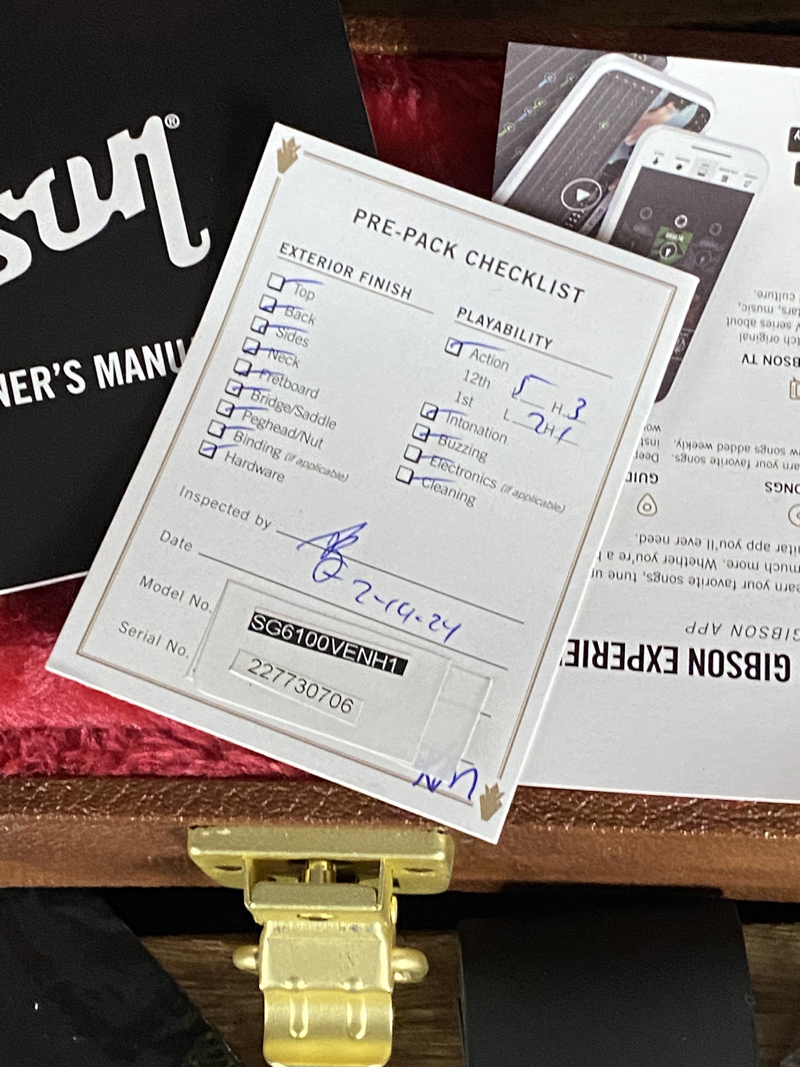 PRE-PACK CHECKLIST
EXTERIOR FINISH
Top
Back
Sides
Neck
Fretboard
Bridge/Saddle
Peghead/Nut
Binding (if applicable)
Hardware
PLAYABILITY
Action
12th 5 H 3
1st L 2 H 1
Intonation
Buzzing
Electronics (if applicable)
Cleaning
Inspected by
Date 2-14-24
Model No. SG6100VENH1
Serial No. 227730706
son®
NER'S MANU
GIBSON EXPERIE
GIBSON APP
earn your favorite songs, tune u
much more. Whether you're a
uitar app you'll ever need.
ONGS
earn your favorite songs.
ew songs added weekly.
GUID
Deep
inst
wo
BSON TV
tch original
series about
tars, music,
culture.